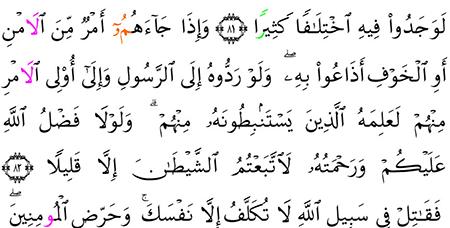 لَوَجَدُوا۟ فِيهِ ٱخْتِلَٰفٗا كَثِيرٗا ۝٨١ وَإِذَا جَآءَهُمُۥٓ أَمْرٞ مِّنَ ٱلَامْنِ
أَوِ ٱلْخَوْفِ أَذَاعُوا۟ بِهِۦۖ وَلَوْ رَدُّوهُ إِلَى ٱلرَّسُولِ وَإِلَىٰٓ أُو۟لِى ٱلَامْرِ
مِنْهُمْ لَعَلِمَهُ ٱلَّذِينَ يَسْتَنۢبِطُونَهُۥ مِنْهُمْۗ وَلَوْلَا فَضْلُ ٱللَّهِ
عَلَيْكُمْ وَرَحْمَتُهُۥ لَٱتَّبَعْتُمُ ٱلشَّيْطَٰنَ إِلَّا قَلِيلٗا ۝٨٢
فَقَٰتِلْ فِى سَبِيلِ ٱللَّهِ لَا تُكَلَّفُ إِلَّا نَفْسَكَۚ وَحَرِّضِ ٱلْمُومِنِينَۖ